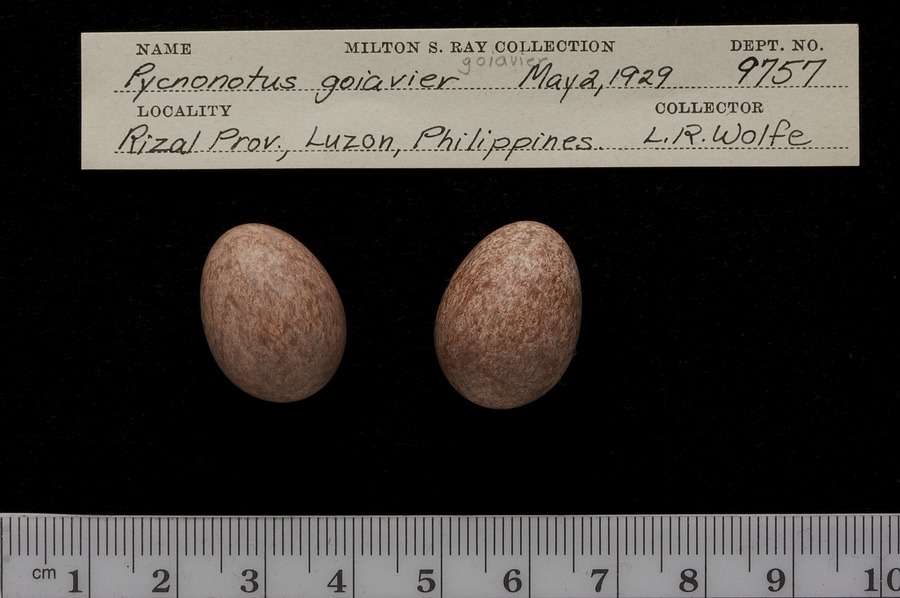 NAME MILTON S. RAY COLLECTION DEPT. NO.
goiavier
Pycnonotus goiavier May 2, 1929 9757
LOCALITY COLLECTOR
Rizal Prov., Luzon, Philippines. L.R. Wolfe
cm 1 2 3 4 5 6 7 8 9 10